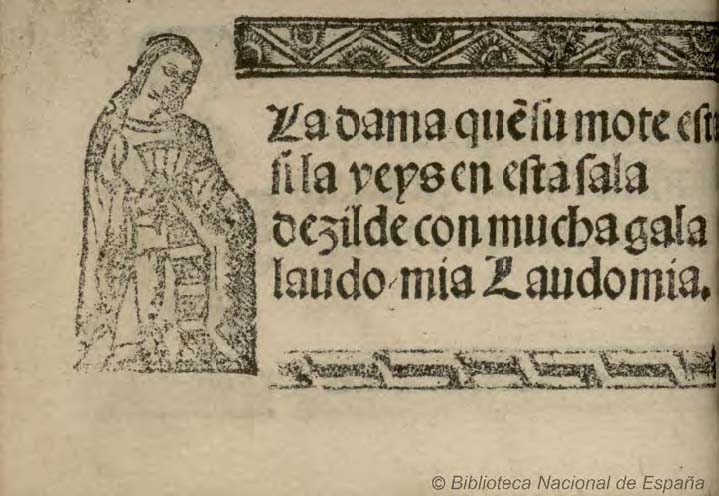 La dama quē su mote est
si la veys en esta sala
dezilde con mucha gala
laudo-mia Laudomia.
© Biblioteca Nacional de España